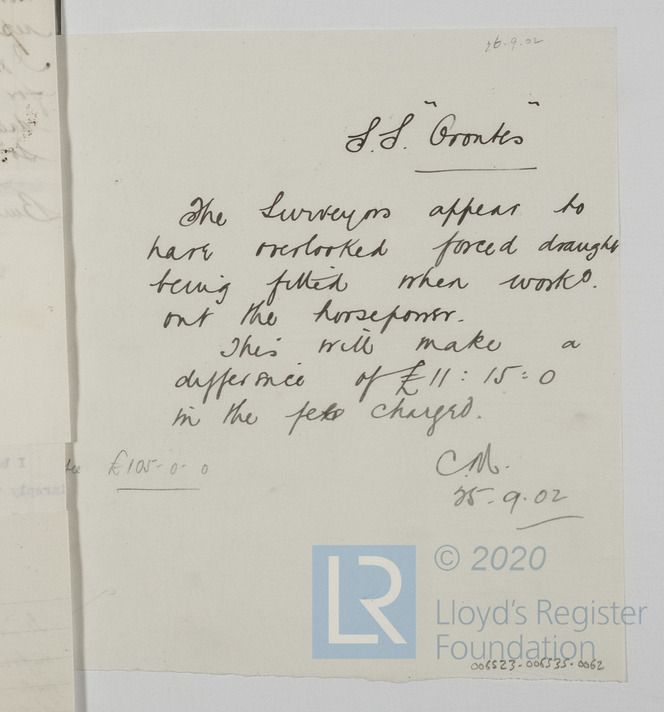 26.9.02
S.S. "Orontes"
The Surveyors appear to
have overlooked forced draught
being fitted when workg.
out the horsepower.
This will make a
difference of £11:15:0
in the fees charged.
£105-0-0
C.M.
25-9-02
LR
© 2020
Lloyd's Register
Foundation
006523-006535-0062